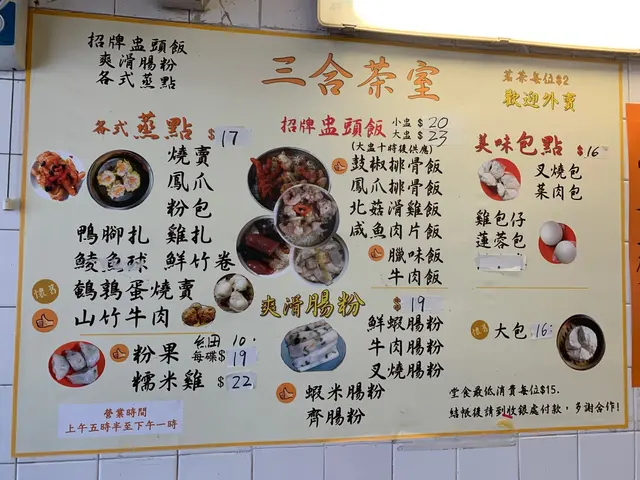 招牌盅頭飯
爽滑腸粉
各式蒸點
三合茶室
茗茶每位$2
歡迎外賣
各式蒸點 $17
燒賣
鳳爪
粉包
鴨腳扎 雞扎
鯪魚球 鮮竹卷
懷舊
鵪鶉蛋燒賣
山竹牛肉
粉果 每碟$ 19
10.
糯米雞 $ 22
營業時間
上午五時半至下午一時
招牌盅頭飯
小盅 $ 20
大盅 $ 23
(大盅十時後供應)
鼓椒排骨飯
鳳爪排骨飯
北菇滑雞飯
咸魚肉片飯
臘味飯
牛肉飯
爽滑腸粉 $ 19
鮮蝦腸粉
牛肉腸粉
叉燒腸粉
蝦米腸粉
齊腸粉
美味包點 $16
叉燒包
菜肉包
雞包仔
蓮蓉包
懷舊
大包 16
堂食最低消費每位$15.
結帳後請到收銀處付款，多謝合作!